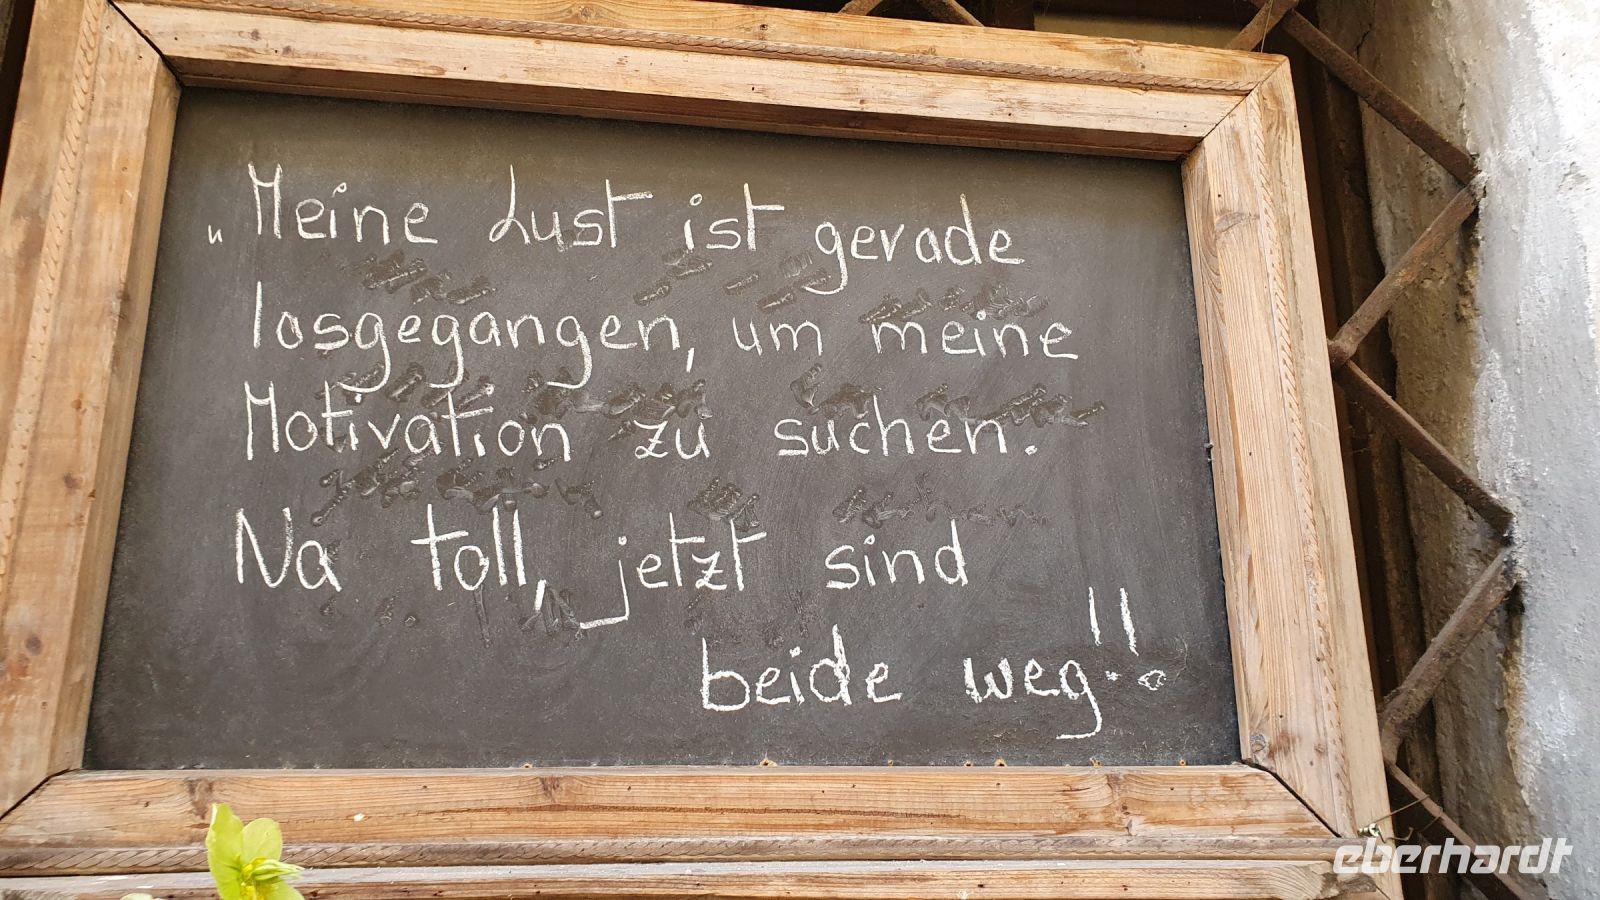 „Meine Lust ist gerade
losgegangen, um meine
Motivation zu suchen.
Na toll, jetzt sind
beide weg!!
eberhardt